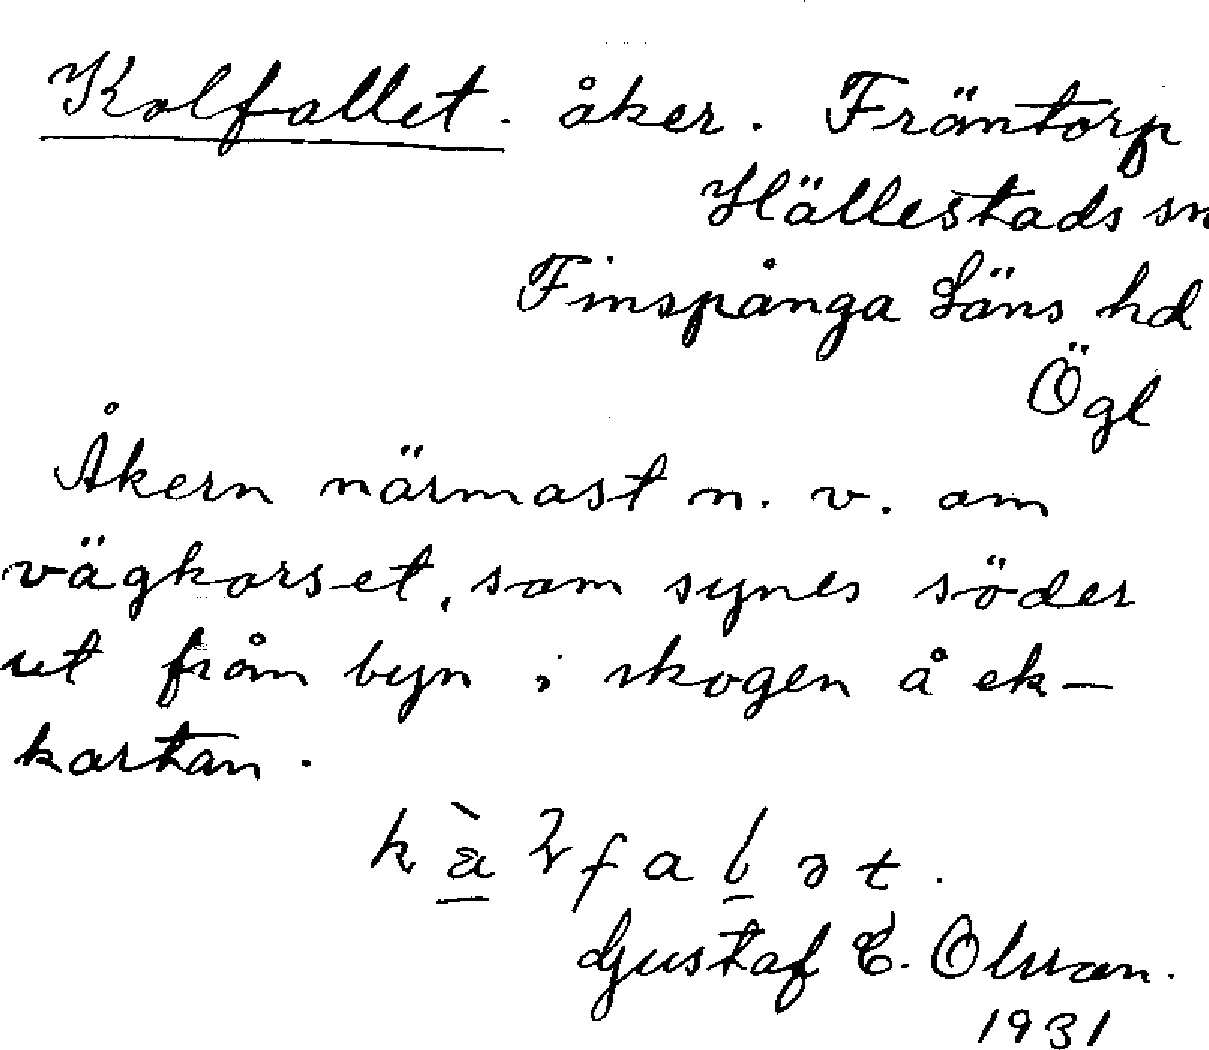 Kolfallet. åker. Fräntorp
Hällestads sn
Finspånga Läns hd
Ögl
Åkern närmast n. v. om
vägkorset, som synes söder
ut från byn i skogen å ek-
kartan.
Gustaf E. Olsson.
1931